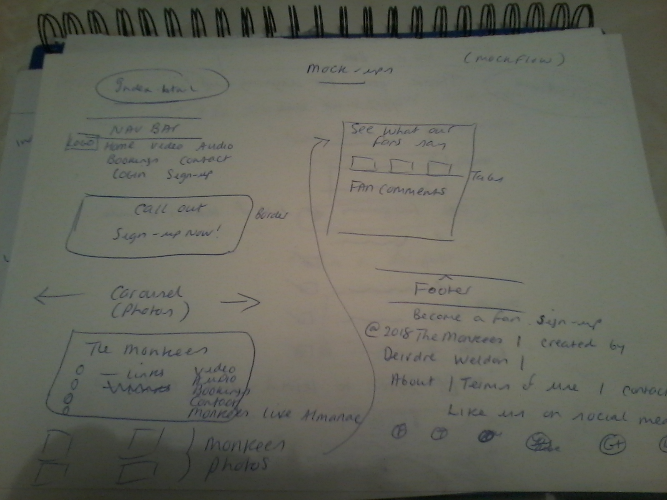 Mock-ups
(mockflow)
Index.html
NAV BAR
LOGO Home Video Audio
Bookings Contact
Login Sign-up
Call out
Sign-up Now!
Border
Carousel
(Photos)
The Monkees
Links Video
Audio
Bookings
Contact
Monkees Live Almanac
Monkees
photos
See what our
fans say
Tabs
FAN COMMENTS
Footer
Become a fan Sign-up
@2018 The Monkees | created by
Deirdre Weldon |
About | Terms of use | contac
Like us on social me
G+